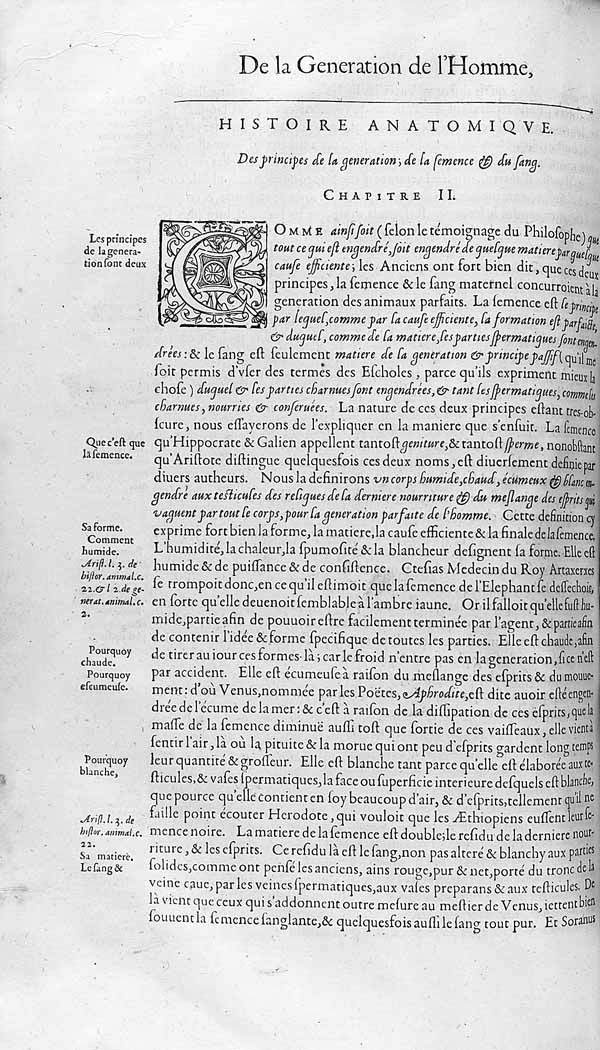 De la Generation de l'Homme,
HISTOIRE ANATOMIQVE.
Des principes de la generation; de la ſemence & du ſang.
CHAPITRE II.
Les principes
de la genera-
tion ſont deux
COMME ainſi ſoit (ſelon le témoignage du Philoſophe) que
tout ce qui eſt engendré, ſoit engendré de quelque matiere par quelque
cauſe efficiente; les Anciens ont fort bien dit, que ces deux
principes, la ſemence & le ſang maternel concurroient à la
generation des animaux parfaits. La ſemence eſt le principe
par lequel, comme par ſa cauſe efficiente, ſa formation eſt parfaicte,
& duquel, comme de ſa matiere, ſes parties ſpermatiques ſont engen-
drées: & le ſang eſt ſeulement matiere de ſa generation & principe paſſif (qu'il me
ſoit permis d'vſer des termes des Eſcholes, parce qu'ils expriment mieux la
choſe) duquel & ſes parties charnues ſont engendrées, & tant les ſpermatiques, comme les
charnues, nourries & conſeruées. La nature de ces deux principes eſtant tres-ob-
ſcure, nous eſſayerons de l'expliquer en la maniere que s'enſuit. La ſemence
Que c'eſt que
la ſemence.
qu'Hippocrate & Galien appellent tantoſt geniture, & tantoſt ſperme, nonobſtant
qu'Ariſtote diſtingue quelquesfois ces deux noms, eſt diuerſement definie par
diuers autheurs. Nous la definirons vn corps humide, chaud, écumeux & blanc en-
gendré aux teſticules des reliques de la derniere nourriture & du meſlange des eſprits qui
vaguent par tout le corps, pour la generation parfaite de l'homme. Cette definition cy
Sa forme.
Comment
humide.
Ariſt. l. 3. de
hiſtor. animal. c.
22. & l 2. de ge-
nerat. animal. c.
2.
exprime fort bien la forme, la matiere, la cauſe efficiente & la finale de la ſemence.
L'humidité, la chaleur, la ſpumoſité & la blancheur deſignent ſa forme. Elle eſt
humide & de puiſſance & de conſiſtence. Cteſias Medecin du Roy Artaxerxes
ſe trompoit donc, en ce qu'il eſtimoit que la ſemence de l'Elephant ſe deſſechoit,
en ſorte qu'elle deuenoit ſemblable à l'ambre iaune. Or il falloit qu'elle fuſt hu-
mide, partie afin de pouuoir eſtre facilement terminée par l'agent, & partie afin
de contenir l'idée & forme ſpecifique de toutes les parties. Elle eſt chaude, afin
Pourquoy
chaude.
Pourquoy
eſcumeuſe.
de tirer au iour ces formes-là; car le froid n'entre pas en la generation, ſi ce n'eſt
par accident. Elle eſt écumeuſe à raiſon du meſlange des eſprits & du mouue-
ment: d'où Venus, nommée par les Poëtes, Aphrodite, eſt dite auoir eſté engen-
drée de l'écume de la mer: & c'eſt à raiſon de la diſſipation de ces eſprits, que la
maſſe de la ſemence diminuë auſſi toſt que ſortie de ces vaiſſeaux, elle vient à
ſentir l'air, là où la pituite & la morue qui ont peu d'eſprits gardent long temps
Pourquoy
blanche,
leur quantité & groſſeur. Elle eſt blanche tant parce qu'elle eſt élaborée aux te-
ſticules, & vaſes ſpermatiques, la face ou ſuperficie interieure deſquels eſt blanche,
que pource qu'elle contient en ſoy beaucoup d'air, & d'eſprits, tellement qu'il ne
Ariſt. l. 3. de
hiſtor. animal. c.
22.
Sa matiere.
Le ſang &
faille point écouter Herodote, qui vouloit que les Æthiopiens euſſent leur ſe-
mence noire. La matiere de la ſemence eſt double; le reſidu de la derniere nour-
riture, & les eſprits. Ce reſidu là eſt le ſang, non pas alteré & blanchy aux parties
ſolides, comme ont penſé les anciens, ains rouge, pur & net, porté du tronc de la
veine caue, par les veines ſpermatiques, aux vaſes preparans & aux teſticules. De
là vient que ceux qui s'addonnent outre meſure au meſtier de Venus, iettent bien
ſouuent la ſemence ſanglante, & quelquesfois auſſi le ſang tout pur. Et Soranus